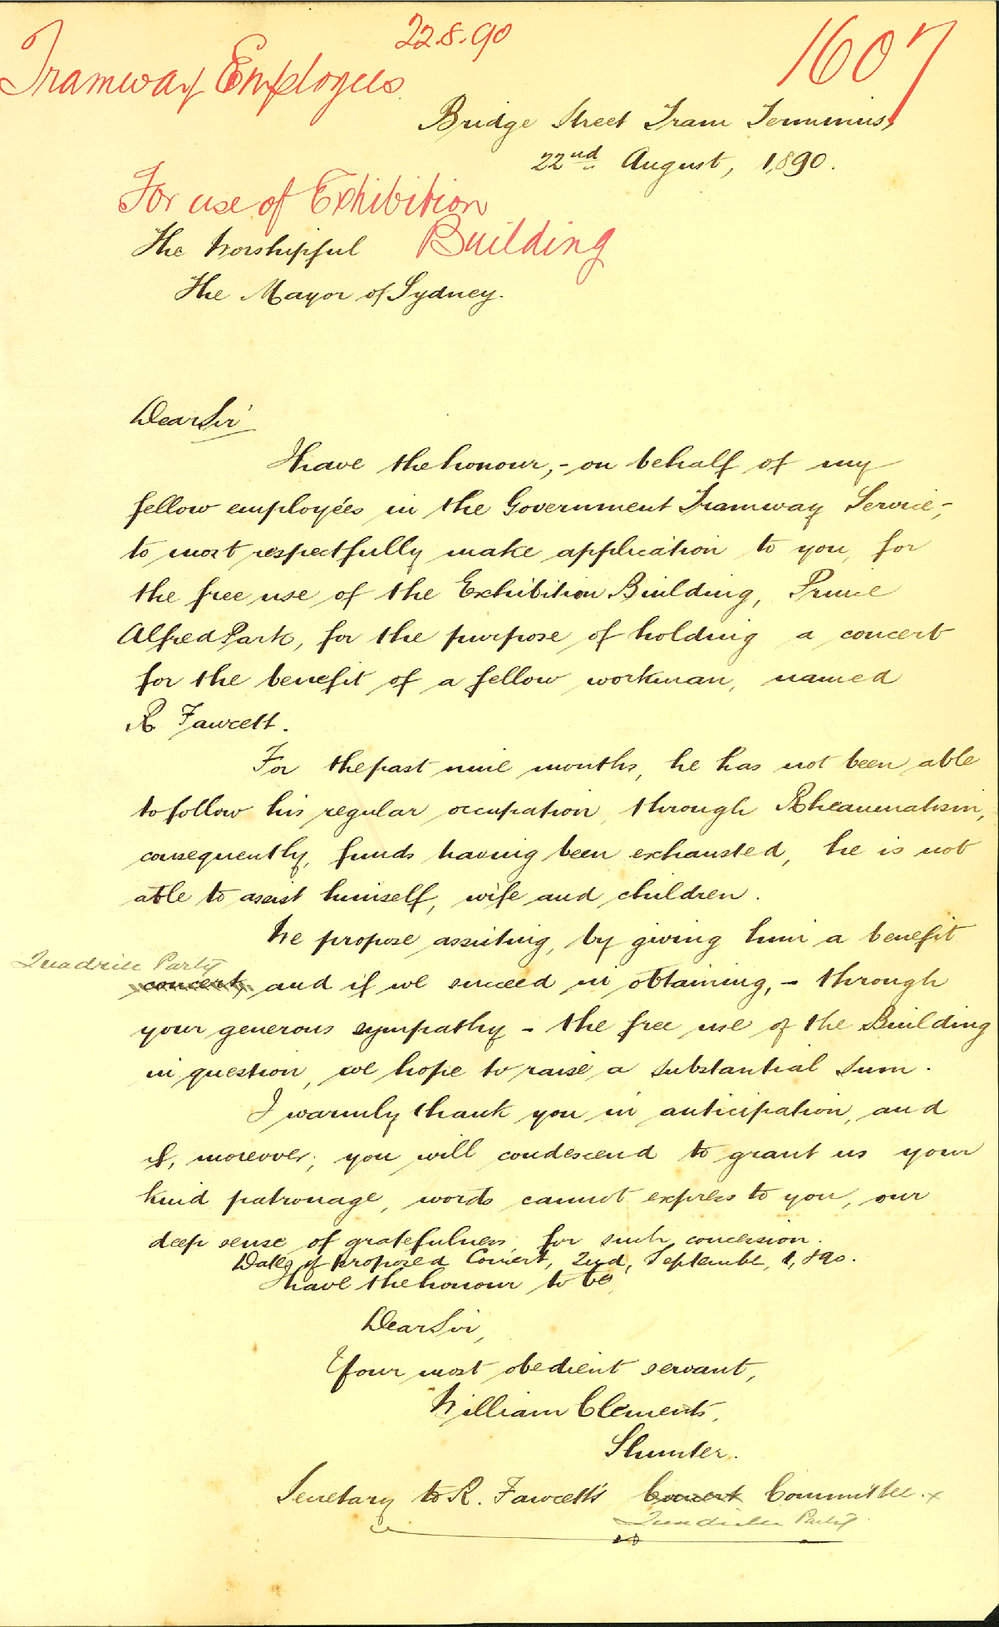 22.8.90
1607
Tramway Employees
Bridge Street Tram Terminus,
22nd August, 1,890.
For use of Exhibition
Building
The Worshipful
The Mayor of Sydney.
Dear Sir
I have the honour, - on behalf of my
fellow employées in the Government Tramway Service, -
to most respectfully make application to you, for
the free use of the Exhibition Building, Prince
Alfred Park, for the purpose of holding a concert
for the benefit of a fellow workman, named
R Fawcett.
For the past nine months, he has not been able
to follow his regular occupation, through Rheaumatism,
consequently, funds having been exhausted, he is not
able to assist himself, wife and children.
We propose assisting, by giving him a benefit
Quadrille Party
concert, and if we succeed in obtaining, - through
your generous sympathy - the free use of the Building
in question, we hope to raise a substantial sum.
I warmly thank you in anticipation, and
if, moreover, you will condescend to grant us your
kind patronage, words cannot express to you, our
deep sense of gratefulness, for such concession.
Date of Proposed Concert, 2nd, September, 1,890.
I have the honour to be,
Dear Sir,
Your most obedient servant,
William Clements,
Shunter.
Secretary to R. Fawcett's Concert Committee. x
Quadrille Party